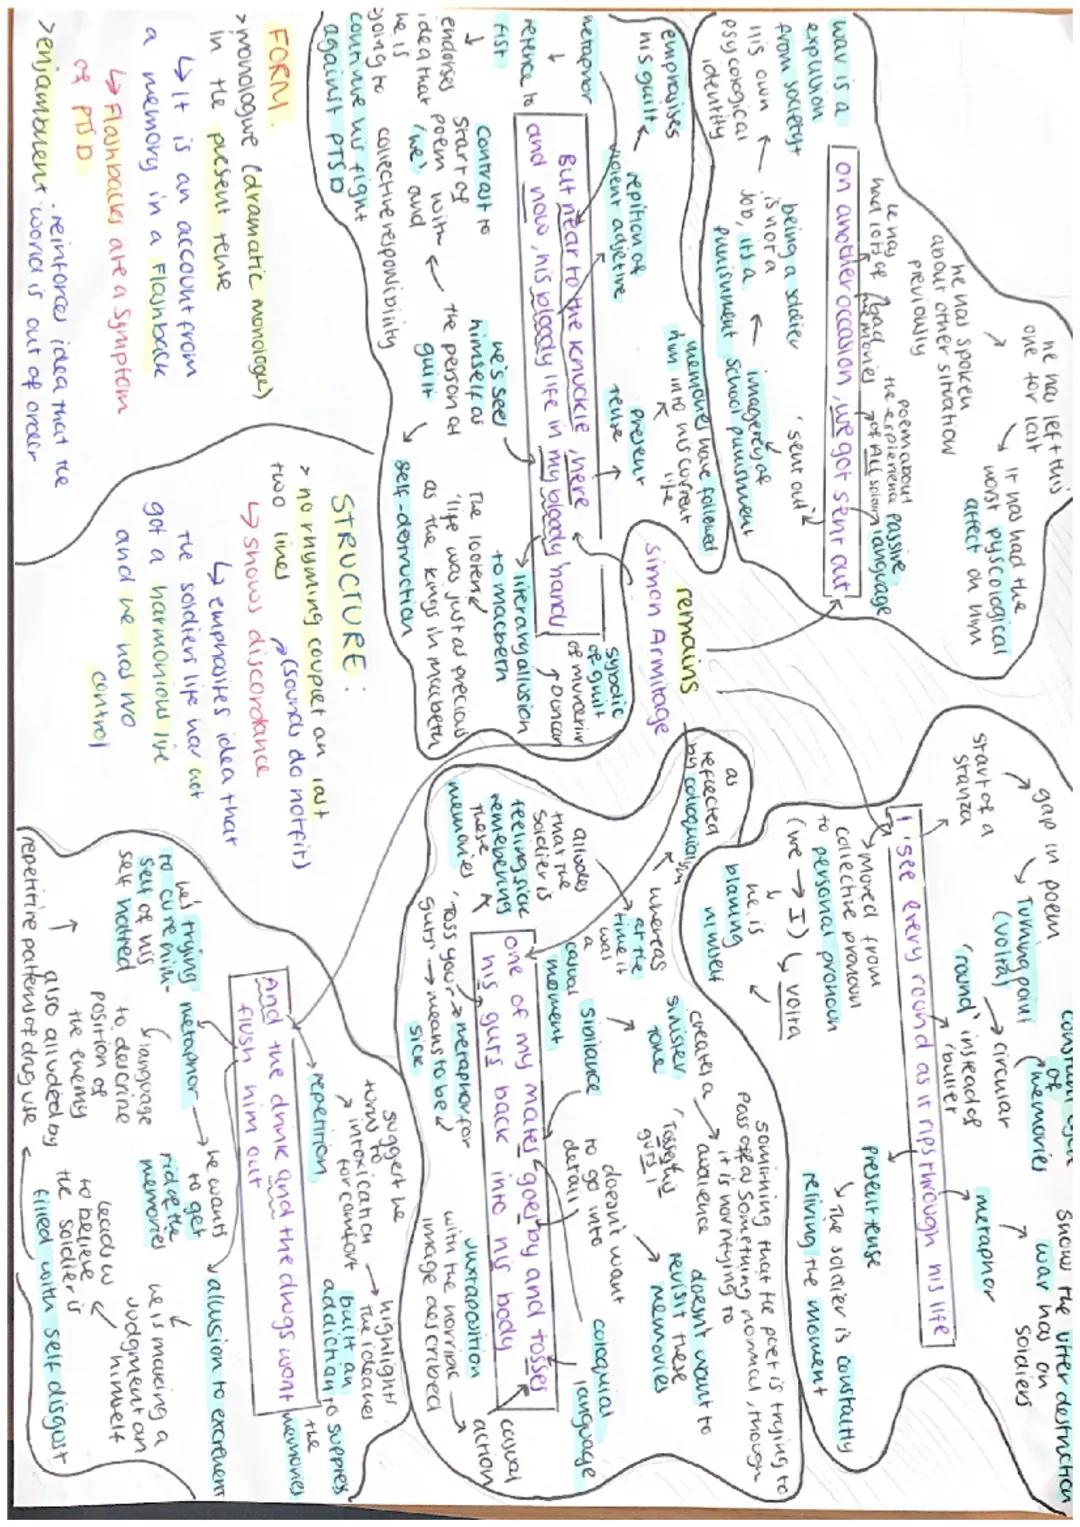 remains
simon Armitage
he has left this
one for last
he has spoken
about other situation
previously
It has had the
worst pyscological
affect on him
he may
had lots of bad
memories
poem about
the experience
of ALL soldiers
passive
language
on another occasion, we got sent out
war is a
expulsion
from society +
his own
psycological
identity
being a soldier
is not a
job, its a
punishment
'sent out'
imagery of
school punishment
memories have followed
him into his current
life
emphasises
his guilt
repition of
violent adjective
present
tense
metaphor
refence to
fist
But near to the knuckle, here
and now, his bloody life in my bloody hands
endorses
idea that
he is
going to
continue his fight
against PTSD
contrast to
start of
poem with
'we' and
collective responsibility
he's see
himself as
the person at
guilt
The looters
'life was just as precious
as the kings in macbeth
self-destruction
literary allusion
to macbeth
sybolic
of guilt
of murdering
Duncan
FORM.
>monologue (dramatic monologe)
in the present tense
↳ It is an account from
a memory in a Flashback
↳ Flashbacks are a symptom
of PTSD
>enjambment - reinforces idea that the
world is out of order
STRUCTURE:
> no rhyming couplet on last
two lines
(sounds do not fit)
↳ shows discordance
↳ emphasises idea that
the soldiers life has not
got a harmonious live
and he has no
control
gap in poem
start of a
stanza
Turning point
(volta)
constant
of
memories
circular
'round' instead of
'bullet'
show the utter destruction
war has on
soldiers
metaphor
I see every round as it rips through his life
moved from
collective pronoun
to personal pronoun
(we → I) ↳ volta
he is
blaming
himself
present tense
↳ The soldier is constatly
reliving the moment
as
reflected
by colloquialism
whereas
at the
time it
was
a
casual
moment
alludes
that the
soldier is
feeling sick
remebering
these
memories
creates a
sinister
tone
sibilance
something that the poet is trying to
pass off as something normal, though
it is horrifying to
audience
'Tosses his
guts'
doesn't want
to go into
detail
doesn't want to
revisit these
memories
coloquial
language
one of my mates goes by and tosses
his guts back into his body
'Toss your
guts' → means to be
sick
metaphor for
juxtaposition
with the horrific
image described
casual
action
suggest he
turns to
intoxication
for comfort
highlights
the idea hes
built an
addiction to suppress
the
memories
repetition
And the drink and the drugs wont
flush him out
he's trying
to cure him-
self of his
self hatred
metaphor
language
to describe
position of
the enemy
he wants
to get
rid of the
memories
allusion to excrement
he is making a
judgment on
himself
leads us
to believe
the soldier is
filled with self disgust
also alluded by
repetitive patterns of drug use